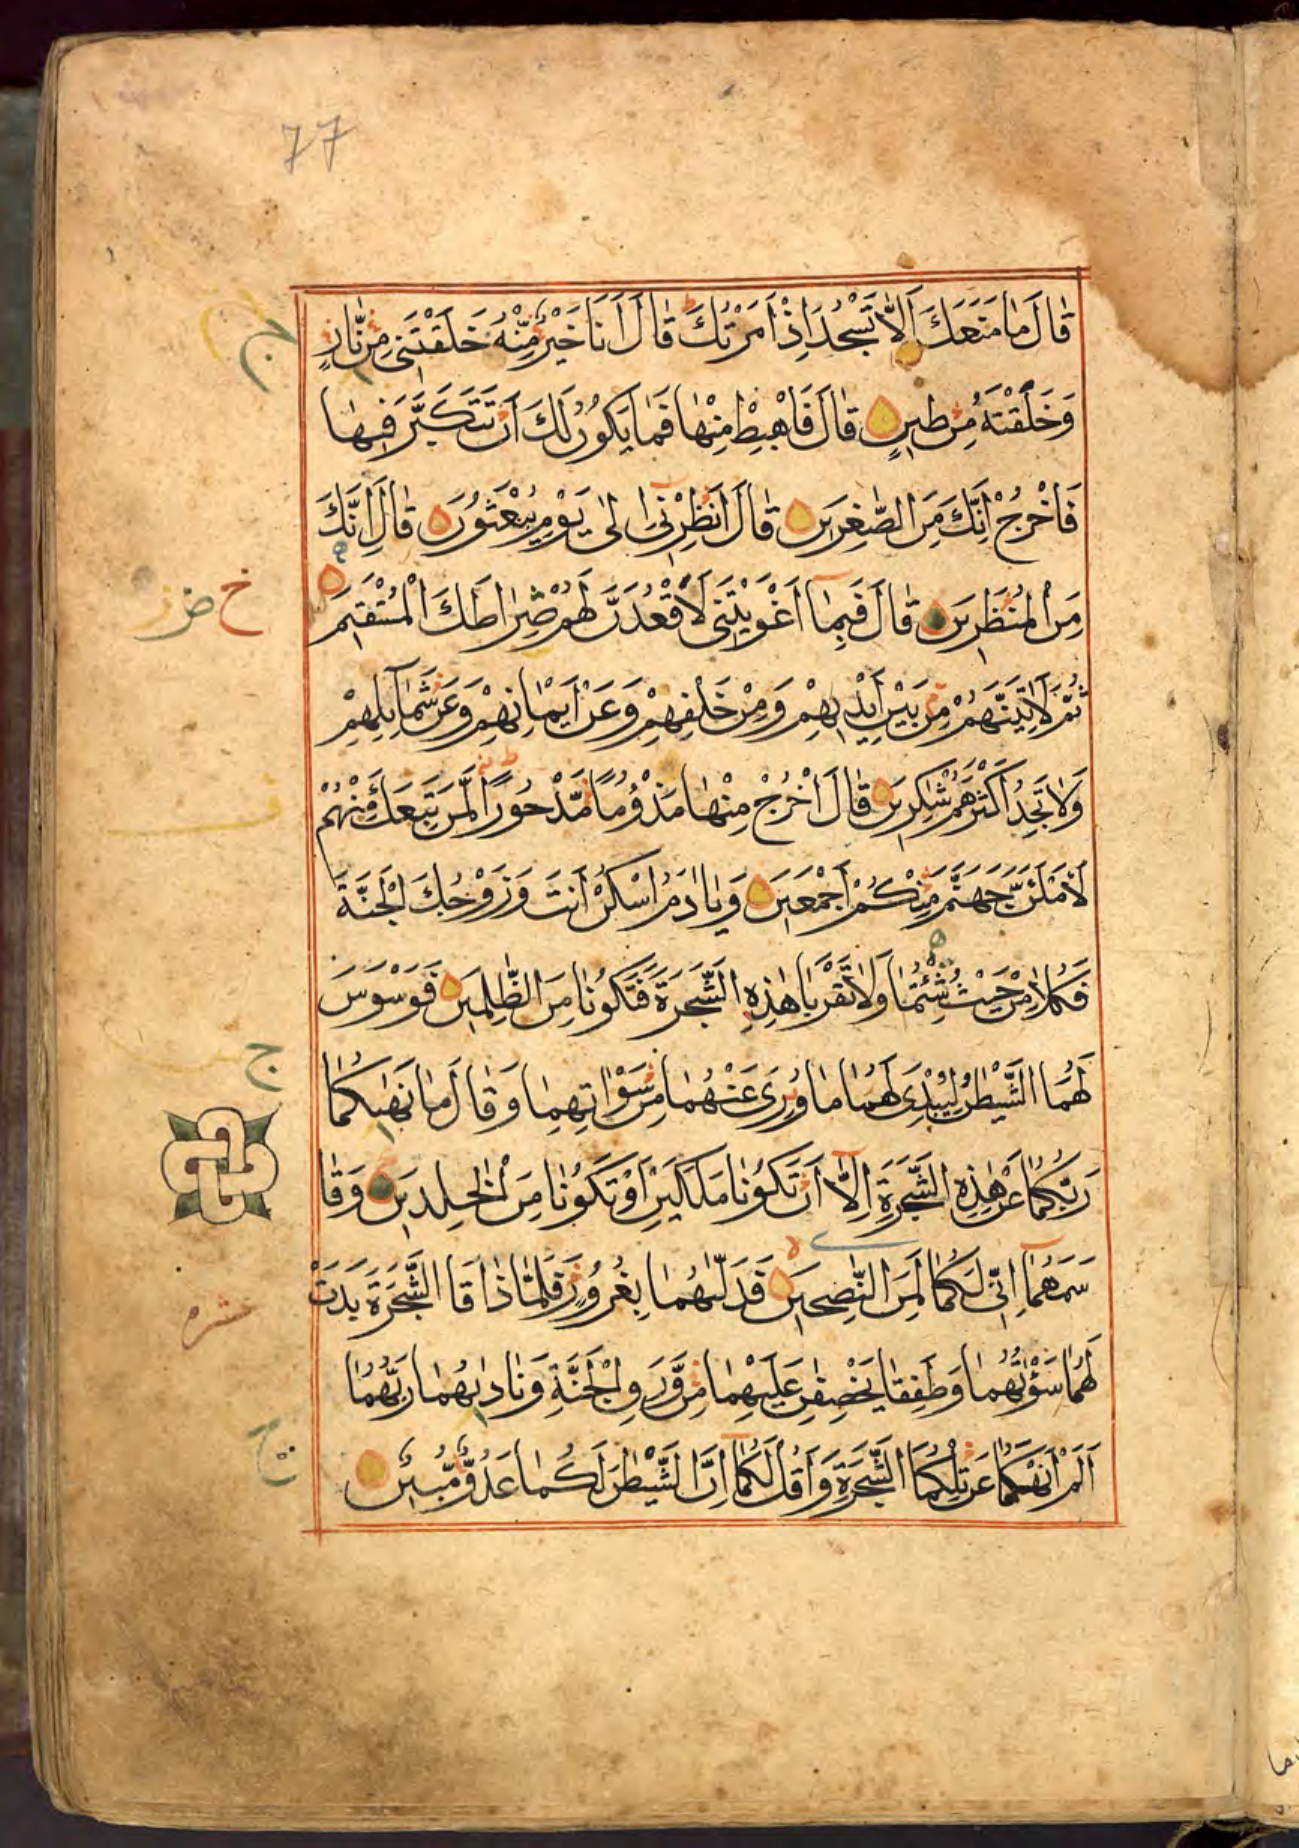 77
قَالَ مَا مَنَعَكَ اَلَّا تَسْجُدَ اِذْ اَمَرْتُكَ ط قَالَ اَنَا خَيْرٌ مِّنْهُ خَلَقْتَنِى مِنْ نَّارٍ
ج
وَخَلَقْتَهُ مِنْ طِيْنٍ قَالَ فَاهْبِطْ مِنْهَا فَمَا يَكُوْنُ لَكَ اَنْ تَتَكَبَّرَ فِيْهَا
فَاخْرُجْ اِنَّكَ مِنَ الصّٰغِرِيْنَ قَالَ اَنْظِرْنِىْ اِلٰى يَوْمِ يُبْعَثُوْنَ قَالَ اِنَّكَ
مِنَ الْمُنْظَرِيْنَ قَالَ فَبِمَآ اَغْوَيْتَنِى لَاَقْعُدَنَّ لَهُمْ صِرَاطَكَ الْمُسْتَقِيْمَ
ثُمَّ لَاٰتِيَنَّهُمْ مِّنْ بَيْنِ اَيْدِيْهِمْ وَمِنْ خَلْفِهِمْ وَعَنْ اَيْمَانِهِمْ وَعَنْ شَمَآئِلِهِمْ
وَلَا تَجِدُ اَكْثَرَهُمْ شٰكِرِيْنَ قَالَ اخْرُجْ مِنْهَا مَذْؤُمًا مَّدْحُوْرًا ط لَمَنْ تَبِعَكَ مِنْهُمْ
لَاَمْلَئَنَّ جَهَنَّمَ مِنْكُمْ اَجْمَعِيْنَ وَيَا اٰدَمُ اسْكُنْ اَنْتَ وَزَوْجُكَ الْجَنَّةَ
فَكُلَا مِنْ حَيْثُ شِئْتُمَا وَلَا تَقْرَبَا هٰذِهِ الشَّجَرَةَ فَتَكُوْنَا مِنَ الظّٰلِمِيْنَ فَوَسْوَسَ
ج
لَهُمَا الشَّيْطٰنُ لِيُبْدِىَ لَهُمَا مَا وُرِىَ عَنْهُمَا مِنْ سَوْاٰتِهِمَا وَقَالَ مَا نَهٰيكُمَا
رَبُّكُمَا عَنْ هٰذِهِ الشَّجَرَةِ اِلَّآ اَنْ تَكُوْنَا مَلَكَيْنِ اَوْ تَكُوْنَا مِنَ الْخٰلِدِيْنَ وَقَا
سَمَهُمَآ اِنِّى لَكُمَا لَمِنَ النّٰصِحِيْنَ فَدَلّٰىهُمَا بِغُرُوْرٍ فَلَمَّا ذَاقَا الشَّجَرَةَ بَدَتْ
عشره
لَهُمَا سَوْاٰتُهُمَا وَطَفِقَا يَخْصِفٰنِ عَلَيْهِمَا مِنْ وَّرَقِ الْجَنَّةِ وَنَادٰىهُمَا رَبُّهُمَا
اَلَمْ اَنْهَكُمَا عَنْ تِلْكُمَا الشَّجَرَةِ وَاَقُلْ لَّكُمَآ اِنَّ الشَّيْطٰنَ لَكُمَا عَدُوٌّ مُّبِيْنٌ